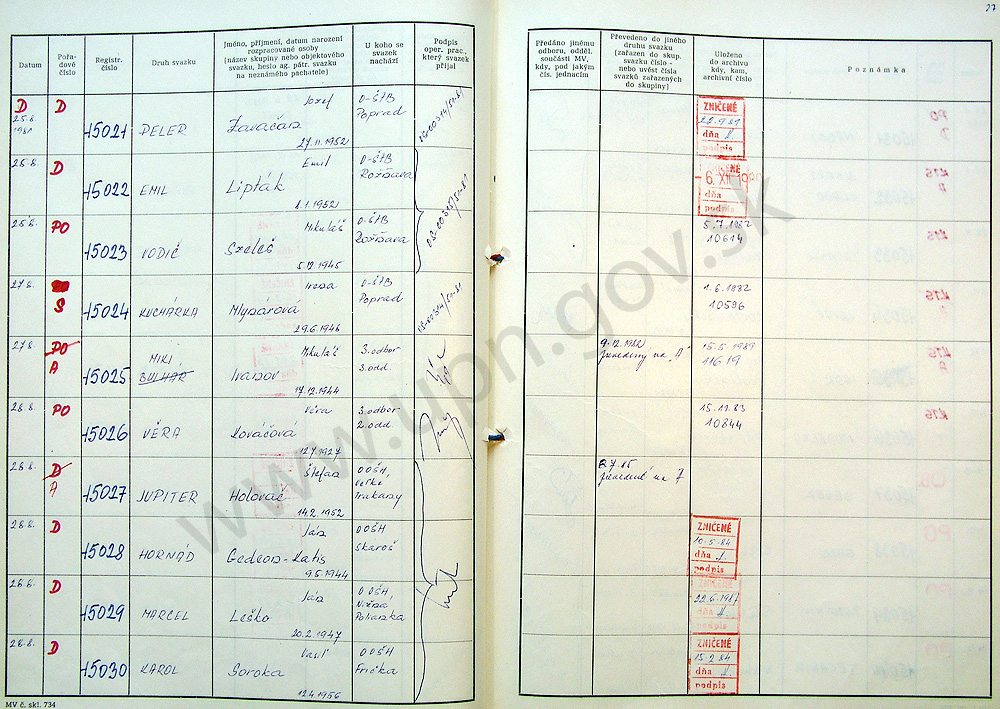 27
Datum
Pořa-
dové
číslo
Registr.
číslo
Druh svazku
Jméno, příjmení, datum narození
rozpracované osoby
(název skupiny nebo objektového
svazku, heslo ag. pátr. svazku
na neznámého pachatele)
U koho se
svazek
nachází
Podpis
oper. prac.,
který svazek
přijal
Předáno jinému
odboru, odděl.
součásti MV,
kdy, pod jakým
čís. jednacím
Převedeno do jiného
druhu svazku
(zařazen do skup.
svazku číslo -
nebo uvést čísla
svazků zařazených
do skupiny)
Uloženo
do archívu
kdy, kam,
archívní číslo
Poznámka
D
25.8.
1981
D
15021
PELER
Jozef
Zavačan
27.11.1952
O-ŠtB
Poprad
ZNIČENÉ
22.9.81
dňa
podpis
25.8.
D
15022
EMIL
Emil
Lipták
1.1.1952
O-ŠtB
Rožňava
ZNIČENÉ
6. XII.
dňa
podpis
25.8.
PO
15023
VODIČ
Mikuláš
Szeleš
5.12.1945
O-ŠtB
Rožňava
5.7.1982
10614
27.8.
S
15024
KUCHÁRKA
Irena
Mlynárová
29.6.1946
O-ŠtB
Poprad
1.6.1982
10596
27.8.
PO
A
15025
MIKI
BULHAR
Mikuláš
Ivanov
17.12.1944
3.odbor
3.odd.
9.12.1982
prevedený na "A"
15.5.1989
11619
28.8.
PO
15026
VĚRA
Věra
Kováčová
12.7.1927
3.odbor
2.odd.
15.11.83
10844
28.8.
D
A
15027
JUPITER
Štefan
Holovač
14.2.1952
OOŠH,
Veľké
Trakany
28.8.
D
15028
HORNÁD
Ján
Gedeon-Katis
9.5.1944
OOŠH
Skaroš
ZNIČENÉ
10.5.84
dňa
podpis
28.8.
D
15029
MARCEL
Ján
Leško
20.2.1947
OOŠH,
Nižná
Polianka
ZNIČENÉ
22.6.1987
dňa
podpis
28.8.
D
15030
KAROL
Vasil
Soroka
12.4.1956
OOŠH
Frička
ZNIČENÉ
15.2.84
dňa
podpis
MV č. skl. 734
www.upn.gov.sk